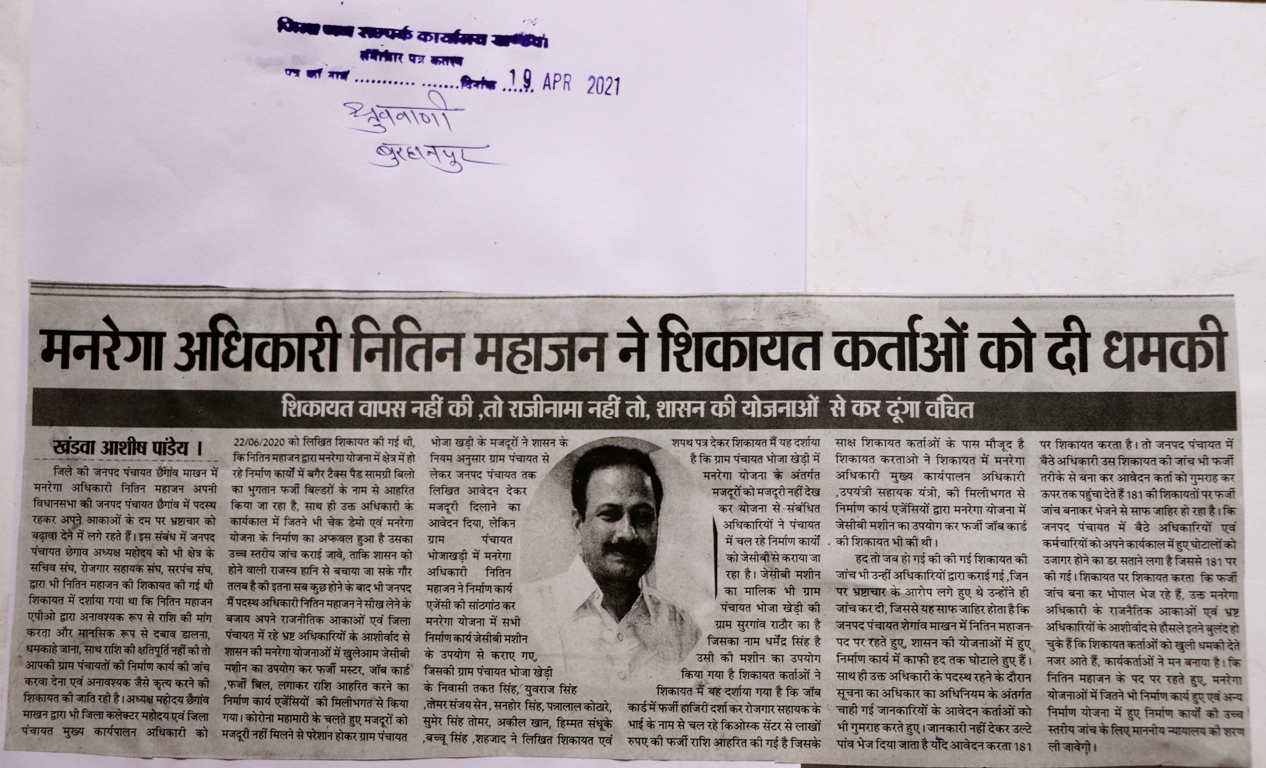 जिला जन सम्पर्क कार्यालय खण्डवा
समाचार पत्र कतरन
पत्र का नाम .................. दिनांक ...... 19 APR 2021
ध्रुववाणी
बुरहानपुर
मनरेगा अधिकारी नितिन महाजन ने शिकायत कर्ताओं को दी धमकी
शिकायत वापस नहीं की ,तो राजीनामा नहीं तो, शासन की योजनाओं से कर दूंगा वंचित
खंडवा आशीष पांडेय ।
जिले की जनपद पंचायत छैगांव माखन में
मनरेगा अधिकारी नितिन महाजन अपनी
विधानसभा की जनपद पंचायत छैगांव में पदस्थ
रहकर अपने आकाओं के दम पर भ्रष्टाचार को
बढ़ावा देने में लगे रहते हैं। इस संबंध में जनपद
पंचायत छैगाव अध्यक्ष महोदय को भी क्षेत्र के
सचिव संघ, रोजगार सहायक संघ, सरपंच संघ,
द्वारा भी नितिन महाजन की शिकायत की गई थी
शिकायत में दर्शाया गया था कि नितिन महाजन
एपीओ द्वारा अनावश्यक रूप से राशि की मांग
करता और मानसिक रूप से दबाव डालना,
धमकाहे जाना, साथ राशि की क्षतिपूर्ति नहीं की तो
आपकी ग्राम पंचायतों की निर्माण कार्य की जांच
करवा देना एवं अनावश्यक जैसे कृत्य करने की
शिकायत की जाति रही है। अध्यक्ष महोदय छैगांव
माखन द्वारा भी जिला कलेक्टर महोदय एवं जिला
पंचायत मुख्य कार्यपालन अधिकारी को
22/06/2020 को लिखित शिकायत की गई थी,
कि नितिन महाजन द्वारा मनरेगा योजना में क्षेत्र में हो
रहे निर्माण कार्यों में बगैर टैक्स पैड सामग्री बिलो
का भुगतान फर्जी बिल्डरों के नाम से आहरित
किया जा रहा है, साथ ही उक्त अधिकारी के
कार्यकाल में जितने भी चेक डेमो एवं मनरेगा
योजना के निर्माण का अप्रूवल हुआ है उसका
उच्च स्तरीय जांच कराई जावे, ताकि शासन को
होने वाली राजस्व हानि से बचाया जा सके गौर
तलब है की इतना सब कुछ होने के बाद भी जनपद
मैं पदस्थ अधिकारी नितिन महाजन ने सीख लेने के
बजाय अपने राजनीतिक आकाओं एवं जिला
पंचायत में रहे भ्रष्ट अधिकारियों के आशीर्वाद से
शासन की मनरेगा योजनाओं में खुलेआम जेसीबी
मशीन का उपयोग कर फर्जी मस्टर, जॉब कार्ड
,फर्जी बिल, लगाकर राशि आहरित करने का
निर्माण कार्य एजेंसियों की मिलीभगत से किया
गया। कोरोना महामारी के चलते हुए मजदूरों को
मजदूरी नहीं मिलने से परेशान होकर ग्राम पंचायत
भोजा खड़ी के मजदूरों ने शासन के
नियम अनुसार ग्राम पंचायत से
लेकर जनपद पंचायत तक
लिखित आवेदन देकर
मजदूरी दिलाने का
आवेदन दिया, लेकिन
ग्राम पंचायत
भोजाखड़ी में मनरेगा
अधिकारी नितिन
महाजन ने निर्माण कार्य
एजेंसी की सांठगांठ कर
मनरेगा योजना में सभी
निर्माण कार्य जेसीबी मशीन
के उपयोग से कराए गए,
जिसकी ग्राम पंचायत भोजा खेड़ी
के निवासी तकत सिंह, युवराज सिंह
,तोमर संजय सेन, सनहोर सिंह, पन्नालाल कोठारे,
सुमेर सिंह तोमर, अकील खान, हिम्मत संधूके
,बच्चू सिंह ,शहजाद ने लिखित शिकायत एवं
शपथ पत्र देकर शिकायत मैं यह दर्शाया
है कि ग्राम पंचायत भोजा खेड़ी में
मनरेगा योजना के अंतर्गत
मजदूरों को मजदूरी नहीं देख
कर योजना से संबंधित
अधिकारियों ने पंचायत
में चल रहे निर्माण कार्यों
को जेसीबी से कराया जा
रहा है। जेसीबी मशीन
का मालिक भी ग्राम
पंचायत भोजा खेड़ी की
ग्राम सुरगांव राठौर का है
जिसका नाम धर्मेंद्र सिंह है
उसी की मशीन का उपयोग
किया गया है शिकायत कर्ताओं ने
शिकायत मैं यह दर्शाया गया है कि जॉब
कार्ड में फर्ज हाजिरी दर्शा कर रोजगार सहायक के
भाई के नाम से चल रहे किओस्क सेंटर से लाखों
रुपए की फर्जी राशि आहरित की गई है जिसके
साक्ष शिकायत कर्ताओं के पास मौजूद है
शिकायत करताओ ने शिकायत में मनरेगा
अधिकारी मुख्य कार्यपालन अधिकारी
,उपयंत्री सहायक यंत्री, की मिलीभगत से
निर्माण कार्य एजेंसियों द्वारा मनरेगा योजना में
जेसीबी मशीन का उपयोग कर फर्जी जॉब कार्ड
की शिकायत भी की थी।
हद तो जब हो गई की की गई शिकायत की
जांच भी उन्हीं अधिकारियों द्वारा कराई गई ,जिन
पर भ्रष्टाचार के आरोप लगे हुए थे उन्होंने ही
जांच कर दी, जिससे यह साफ जाहिर होता है कि
जनपद पंचायत शेगांव माखन में नितिन महाजन
पद पर रहते हुए, शासन की योजनाओं में हुए
निर्माण कार्य में काफी हद तक घोटाले हुए हैं।
साथ ही उक्त अधिकारी के पदस्थ रहने के दौरान
सूचना का अधिकार का अधिनियम के अंतर्गत
चाही गई जानकारियों के आवेदन कर्ताओं को
भी गुमराह करते हुए। जानकारी नहीं देकर उल्टे
पांव भेज दिया जाता है यदि आवेदन करता 181
पर शिकायत करता है। तो जनपद पंचायत में
बैठे अधिकारी उस शिकायत की जांच भी फर्जी
तरीके से बना कर आवेदन कर्ता को गुमराह कर
ऊपर तक पहुंचा देते हैं 181 की शिकायतों पर फर्जी
जांच बनाकर भेजने से साफ जाहिर हो रहा है। कि
जनपद पंचायत में बैठे अधिकारियों एवं
कर्मचारियों को अपने कार्यकाल में हुए घोटालों को
उजागर होने का डर सताने लगा है जिससे 181 पर
की गई। शिकायत पर शिकायत करता कि फर्जी
जांच बना कर भोपाल भेज रहे हैं, उक्त मनरेगा
अधिकारी के राजनैतिक आकाओं एवं भ्रष्ट
अधिकारियों के आशीर्वाद से हौसले इतने बुलंद हो
चुके हैं कि शिकायत कर्ताओं को खुली धमकी देते
नजर आते हैं, कार्यकर्ताओं ने मन बनाया है। कि
नितिन महाजन के पद पर रहते हुए, मनरेगा
योजनाओं में जितने भी निर्माण कार्य हुए एवं अन्य
निर्माण योजना में हुए निर्माण कार्यों की उच्च
स्तरीय जांच के लिए माननीय न्यायालय की शरण
ली जावेगी।